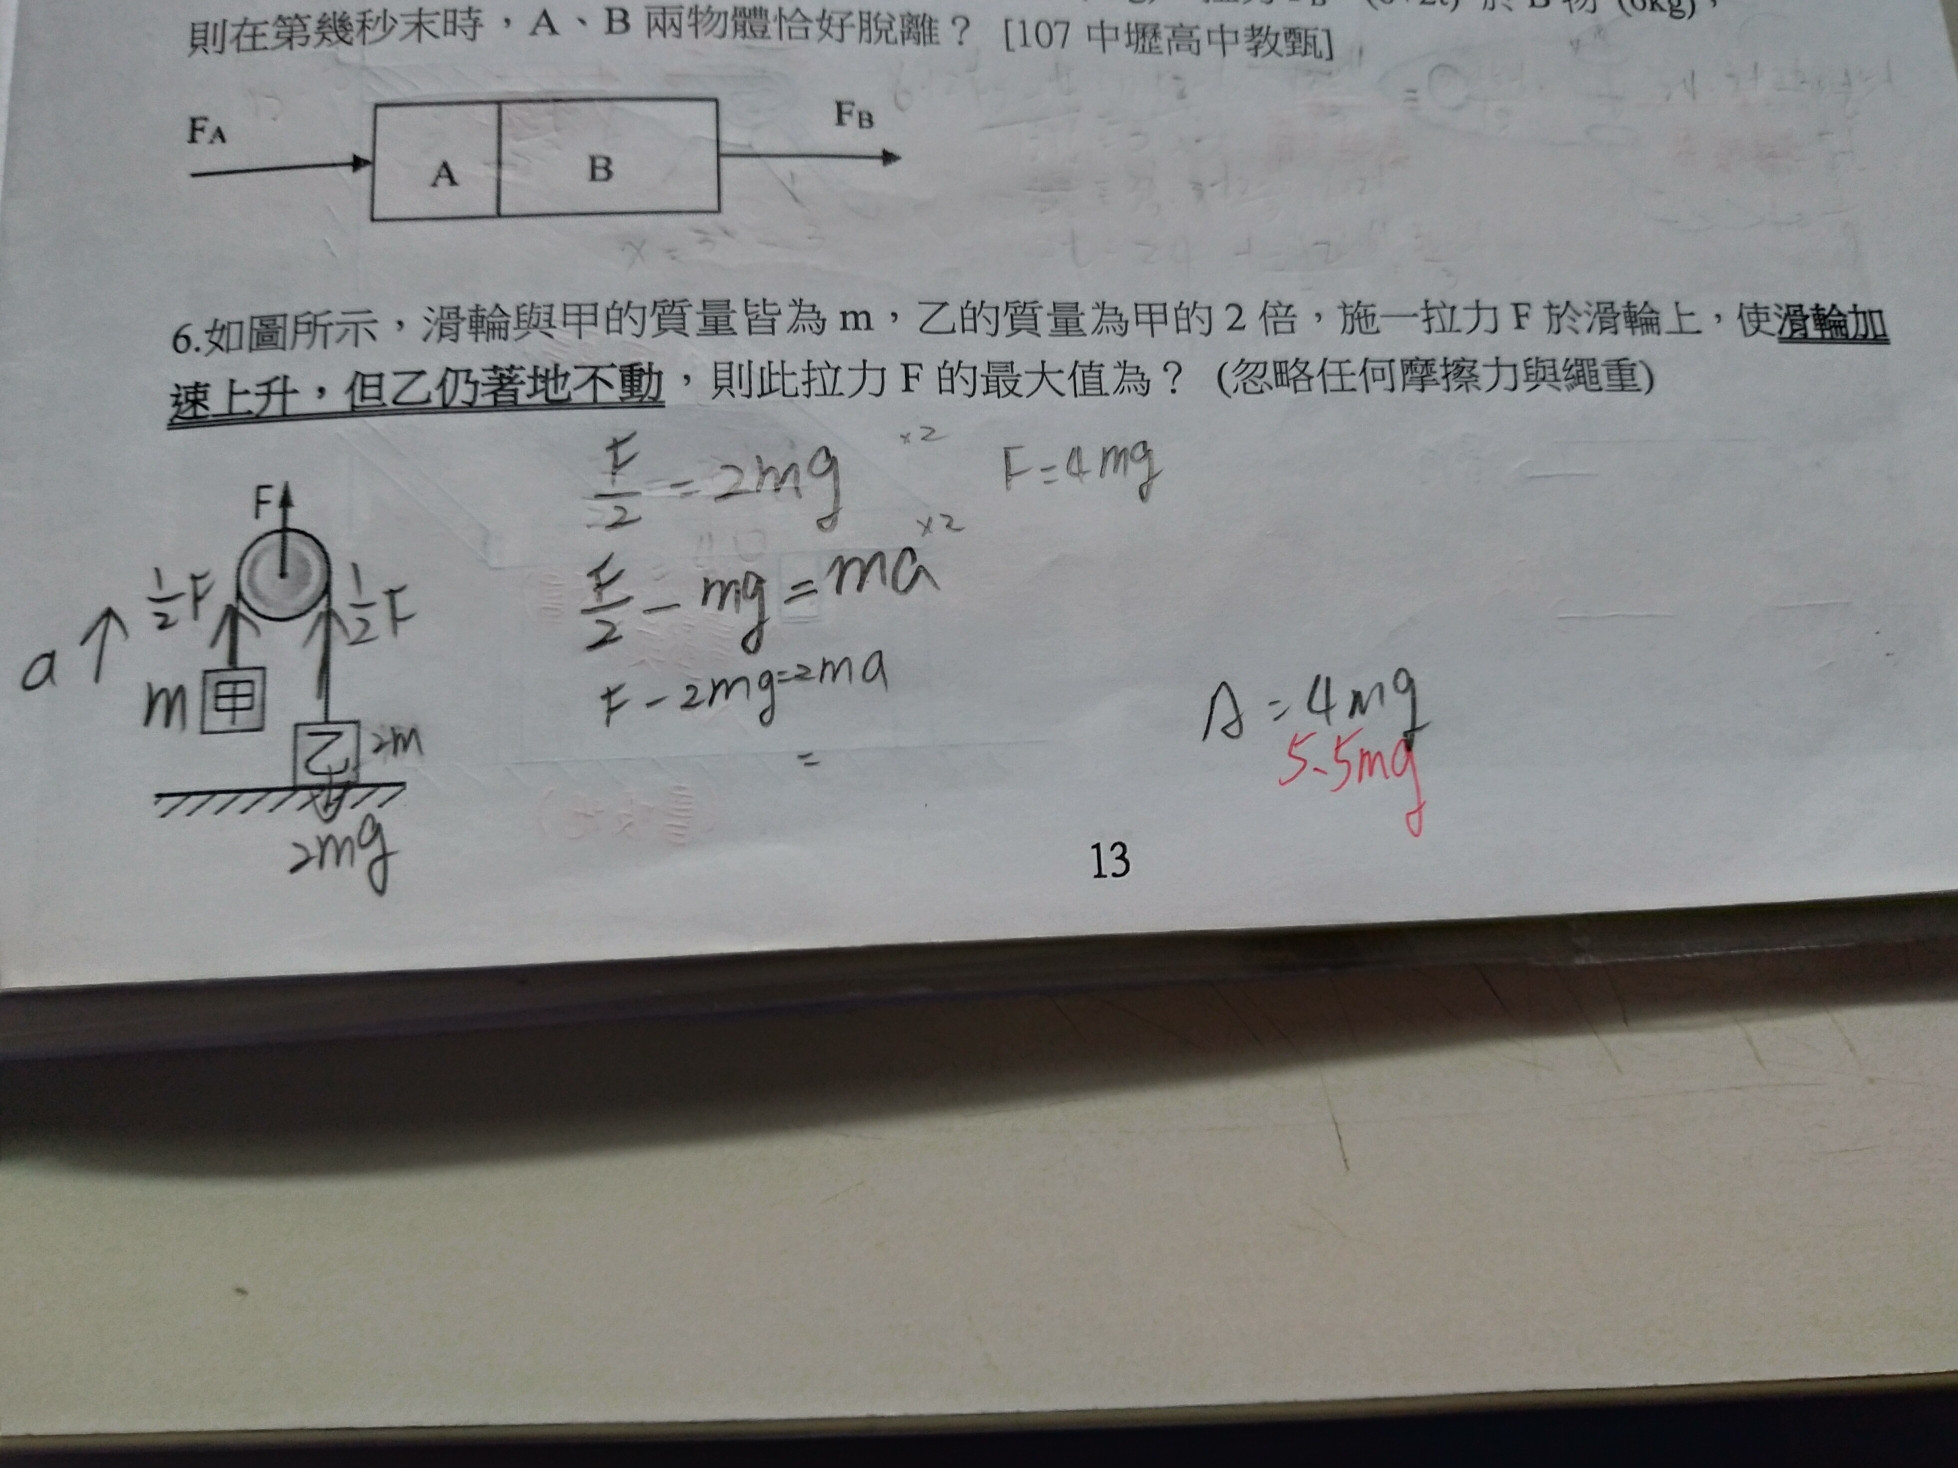 則在第幾秒末時，A、B 兩物體恰好脫離？ [107 中壢高中教甄]
FA
A
B
FB
6.如圖所示，滑輪與甲的質量皆為 m，乙的質量為甲的 2 倍，施一拉力 F 於滑輪上，使滑輪加
速上升，但乙仍著地不動，則此拉力 F 的最大值為？ (忽略任何摩擦力與繩重)
F/2 = 2mg ×2 F=4mg
F/2 - mg = ma ×2
F - 2mg = 2ma
=
F
1/2 F
1/2 F
a
m
甲
乙
2m
2mg
A = 4mg
5.5mg
13